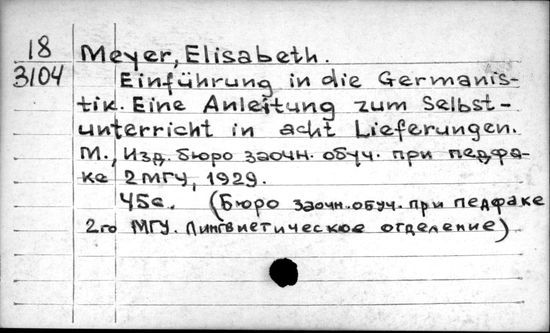 18 Meyer, Elisabeth.
3104 Einführung in die Germanis-
tik. Eine Anleitung zum Selbst-
unterricht in acht Lieferungen.
М., Изд. бюро заочн. обуч. при педфа-
ке 2МГУ, 1929.
45с. (Бюро заочн. обуч. при педфаке
2го МГУ. Лингвистическое отделение)